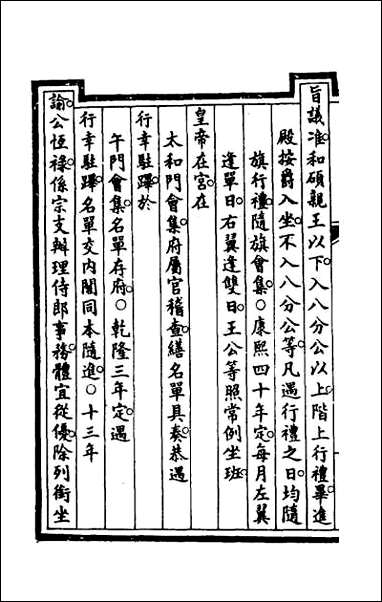 旨議准和碩親王以下入八分公以上階上行禮畢進
殿按爵入坐不入八分公等凡遇行禮之日均隨
旗行禮隨旗會集○康熙四十年定每月左翼
逢單日右翼逢雙日王公等照常例坐班
皇帝在宮在
太和門會集府屬官稽查繕名單具奏恭遇
行幸駐蹕於
午門會集名單存府○乾隆三年定遇
行幸駐蹕名單交内閣同本隨進○十三年
諭公恆祿係宗支辦理侍郎事務體宜從優除列銜坐